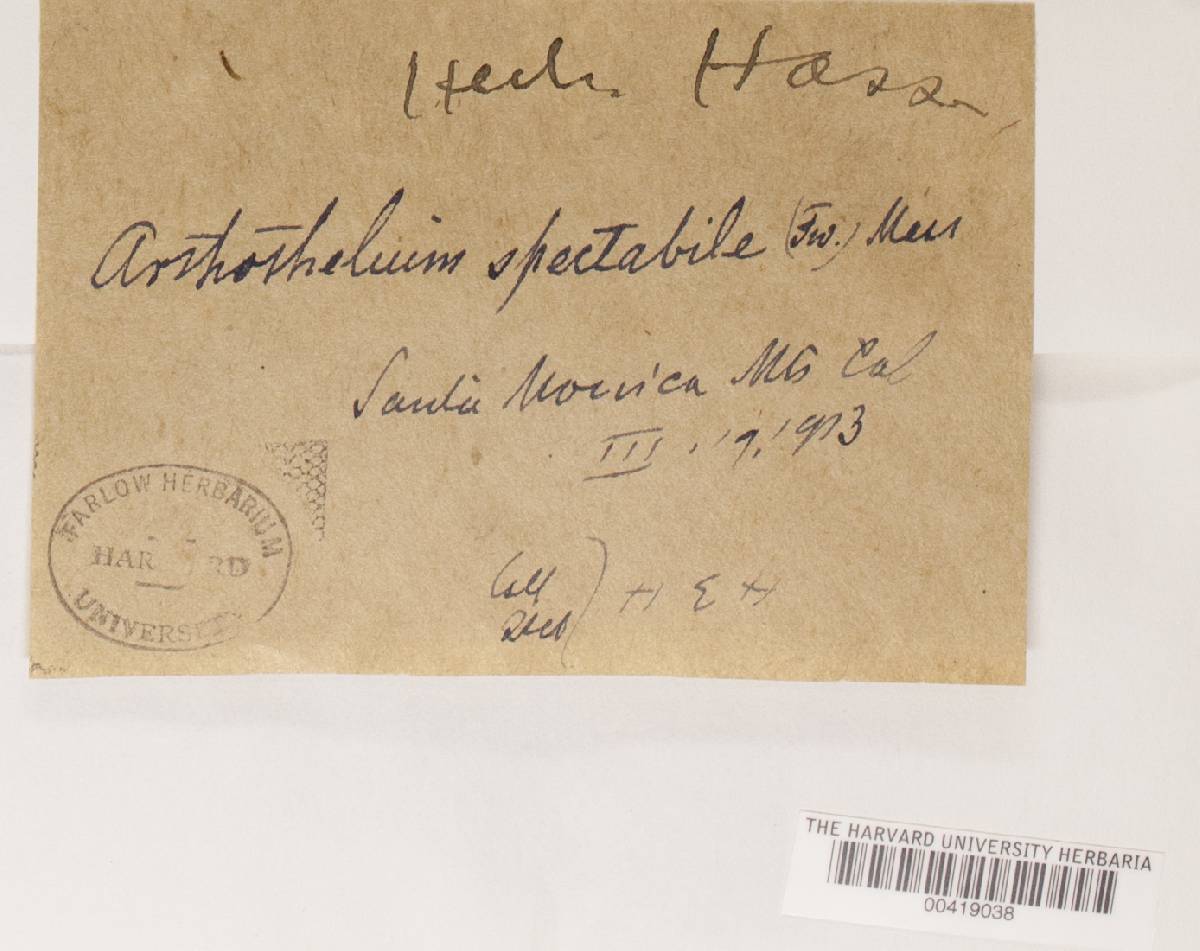 Herb. Hasse
Arthothelium spectabile (Fw.) Mass
Santa Monica Mts Cal
III. 19, 1913
Coll
Det } H E H
FARLOW HERBARIUM
HARVARD
UNIVERSITY
THE HARVARD UNIVERSITY HERBARIA
00419038